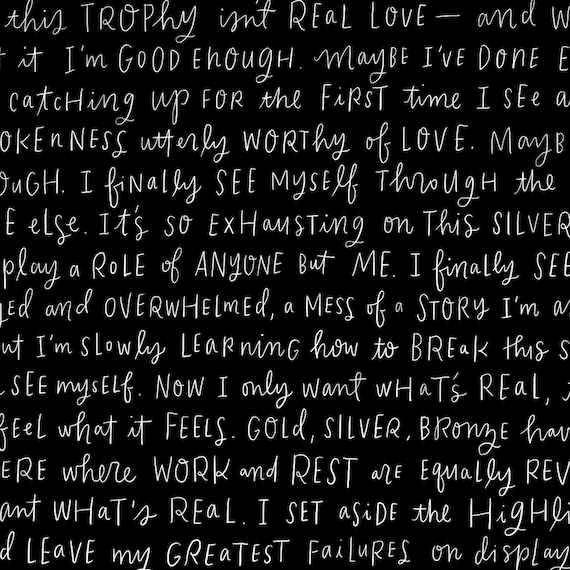 this TROPHY isn't REAL LOVE — and W
t it I'm GOOD ENOUGH. Maybe I'VE DONE E
catching up FOR the FIRST time I SEE a
OKENNESS utterly WORTHY of LOVE. Mayb
OUGH. I finally SEE Myself THROUGH the
E else. It's so EXHAUSTING on This SILVER
play a ROLE of ANYONE But ME. I finally SEE
ED and OVERWHELMED, a MESS of a STORY I'm a
ut I'm slowly LEARNING how to BREAK this s
SEE myself. NOW I only want WHAT'S REAL,
feel what it FEELS. GOLD, SILVER, BRONZE hav
ERE where WORK and REST are Equally REV
ant WHAT'S REAL. I SET aside the HIGHLI
d LEAVE my GREATEST FAILURES on display